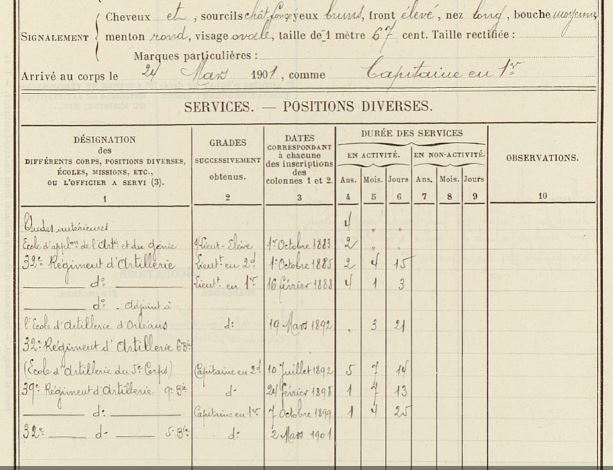 Cheveux et, sourcils chât. foncé yeux bruns, front élevé, nez long, bouche moyenne
SIGNALEMENT menton rond, visage ovale, taille de 1 mètre 67 cent. Taille rectifiée :
Marques particulières :
Arrivé au corps le 24 Mars 1901, comme Capitaine en 1er
SERVICES. — POSITIONS DIVERSES.
DÉSIGNATION des DIFFÉRENTS CORPS, POSITIONS DIVERSES, ÉCOLES, MISSIONS, ETC., OU L'OFFICIER A SERVI (3). GRADES SUCCESSIVEMENT obtenus. DATES CORRESPONDANT à chacune des inscriptions des colonnes 1 et 2. DURÉE DES SERVICES OBSERVATIONS.
EN ACTIVITÉ. EN NON-ACTIVITÉ.
Ans. Mois. Jours Ans. Mois. Jours
1 2 3 4 5 6 7 8 9 10
Etudes intérieures 4 " "
Ecole d'applon de l'Artie et du génie S/Lieut-Elève 1er Octobre 1883 2 " "
32e Régiment d'Artillerie Lieutt en 2d 1er Octobre 1885 2 4 15
do Lieutt en 1er 16 février 1888 4 1 3
do Adjoint à
l'Ecole d'Artillerie d'Orléans do 19 Mars 1892 " 3 21
32e Régiment d'Artillerie 6e Bie
(Ecole d'Artillerie du 5e Corps) Capitaine en 2d 10 Juillet 1892 5 7 14
39e Régiment d'Artillerie 9e Bie do 24 février 1898 1 7 13
do Capitaine en 1er 7 Octobre 1899 1 4 25
32e do 5e Bie do 2 Mars 1901